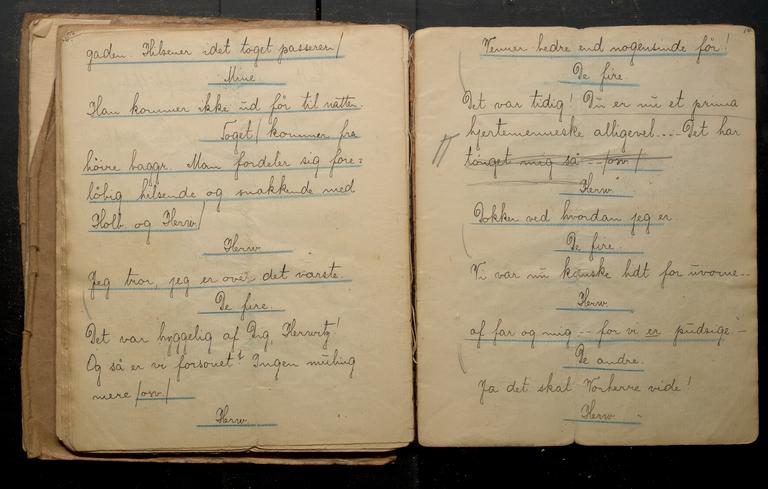 gaden. Hilsener idet toget passerer/
Mine.
Han kommer ikke ud för til natten.
Toget/ kommer fra
höire baggr. Man fordeler sig fore=
löbig hilsende og snakkende med
Holb. og Herw/
Herw.
Jeg tror, jeg er over det værste.
De fire.
Det var hyggelig af Dig, Herwitz!
Og så er vi forsonet! Ingen muling
mere /osv./
Herw.
Venner bedre end nogensinde för!
De fire.
Det var tidig! Du er nu et prima
hjertemenneske alligevel.... Det har
tynget mig så ... /osv/
Herw.
Dokker ved hvordan jeg er.
De fire.
Vi var nu kanske lidt for uvorne--
Herw.
af far og mig -- for vi er pudsige. -
De andre.
Ja det skal Vorherre vide!
Herw.